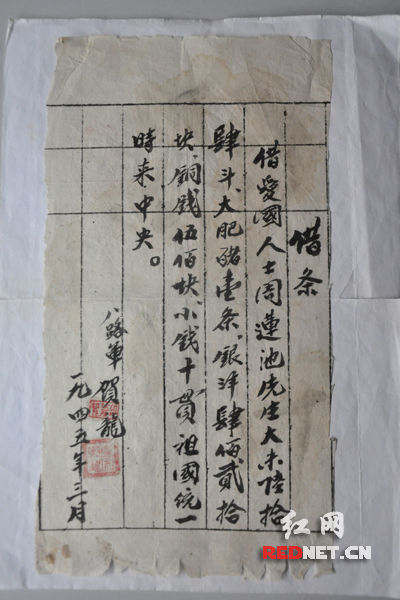 借条
借愛國人士周蓮池先生大米陸拾
肆斗、大肥豬壹条、銀洋肆佰貳拾
块、銅钱伍佰块、小钱十貫、祖國統一
時来中央。
八路軍 賀龍
一九四五年三月
红网
REDNET.CN